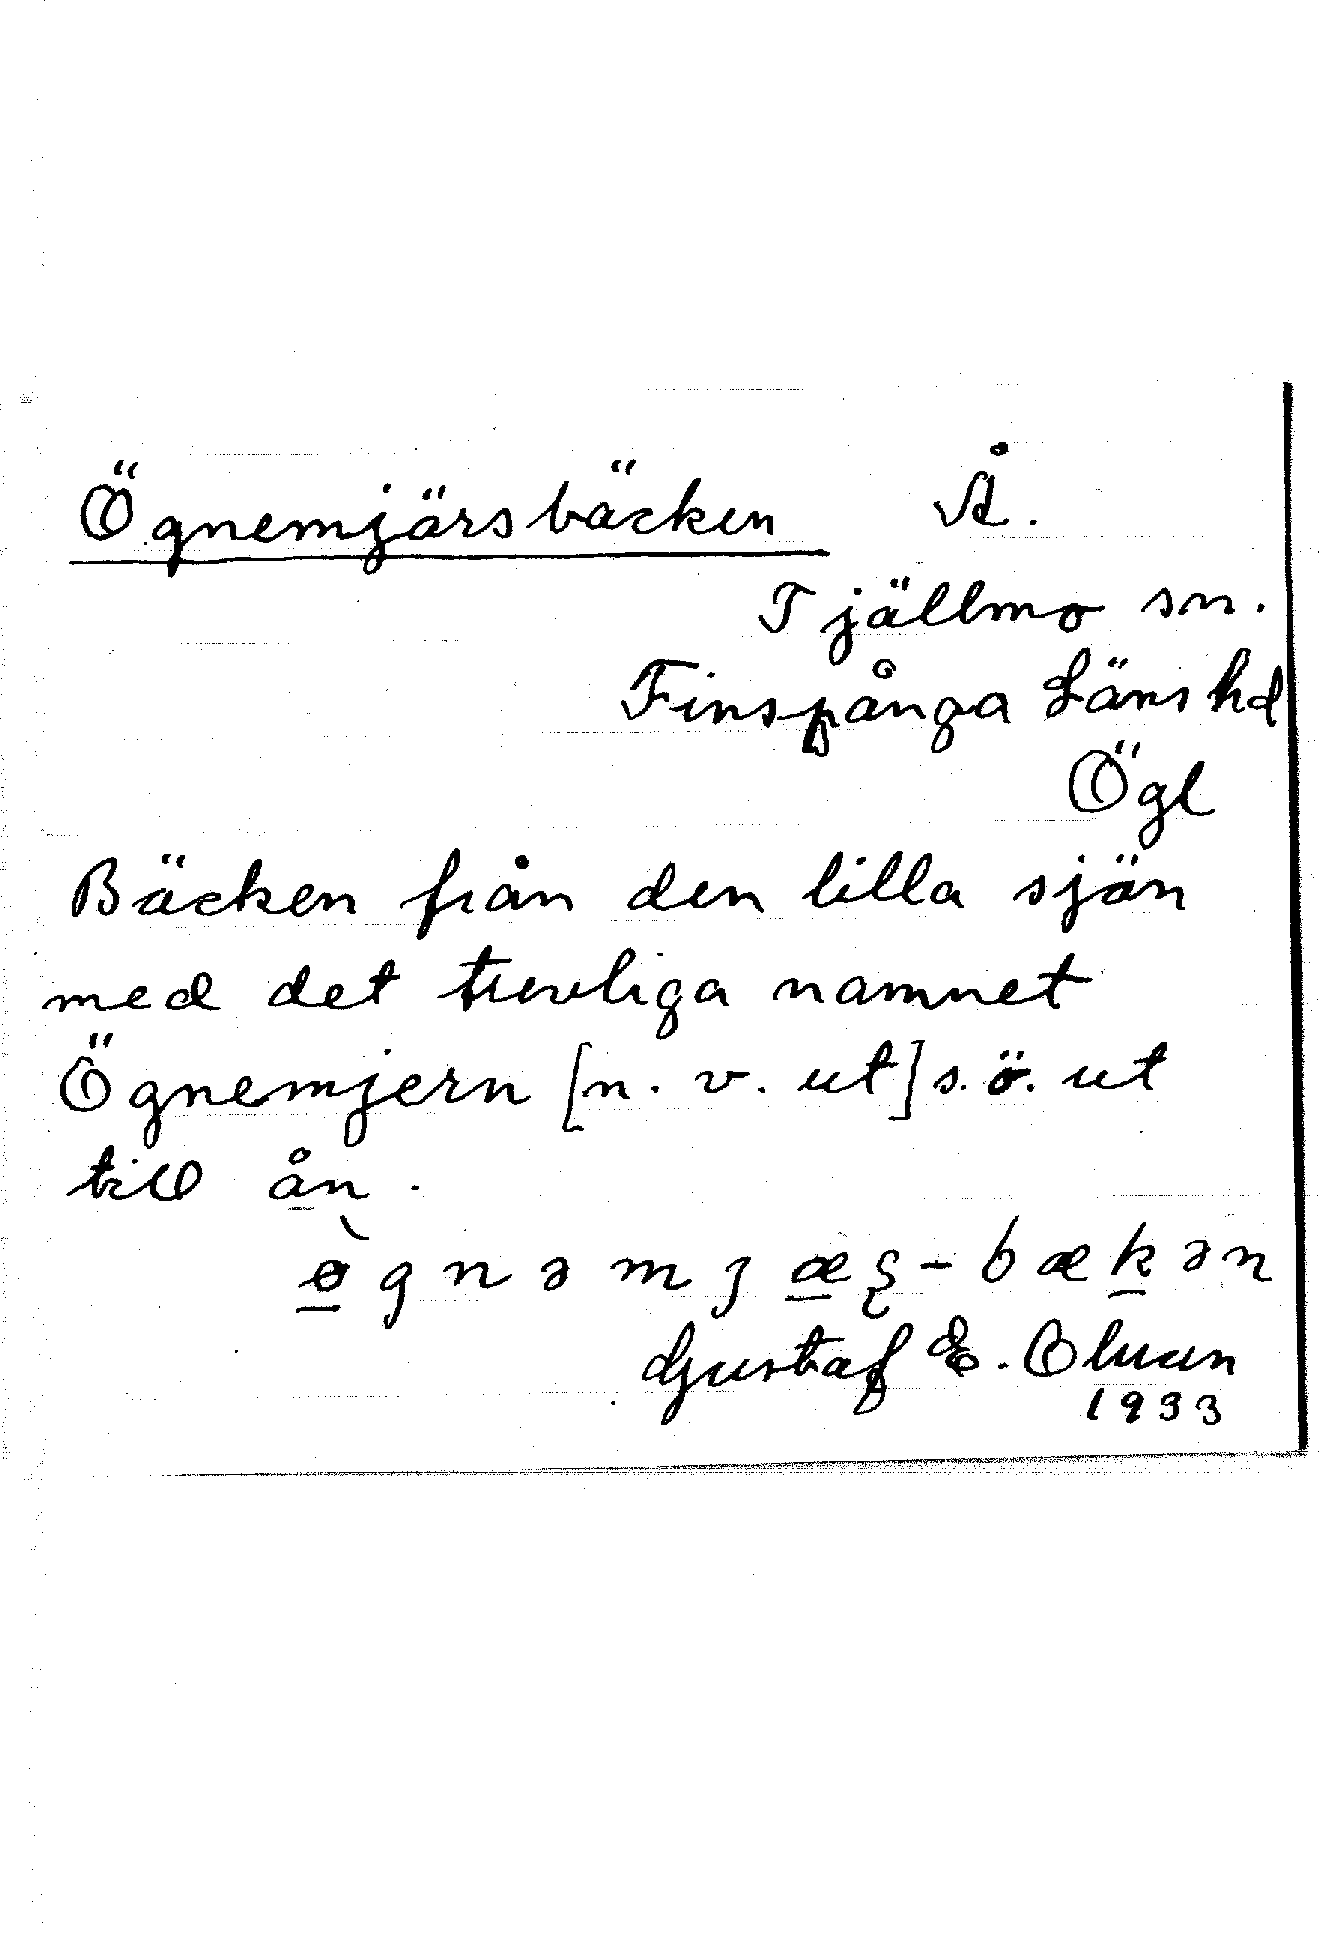 Ögnemjärsbäcken Å.
Tjällmo sn.
Finspånga Läns hd
Ögl
Bäcken från den lilla sjön
med det trevliga namnet
Ögnemjern [n. v. ut] s. ö. ut
till ån.
ø̀gnəmjæʂ-bækən
Gustaf E. Olsson
1933